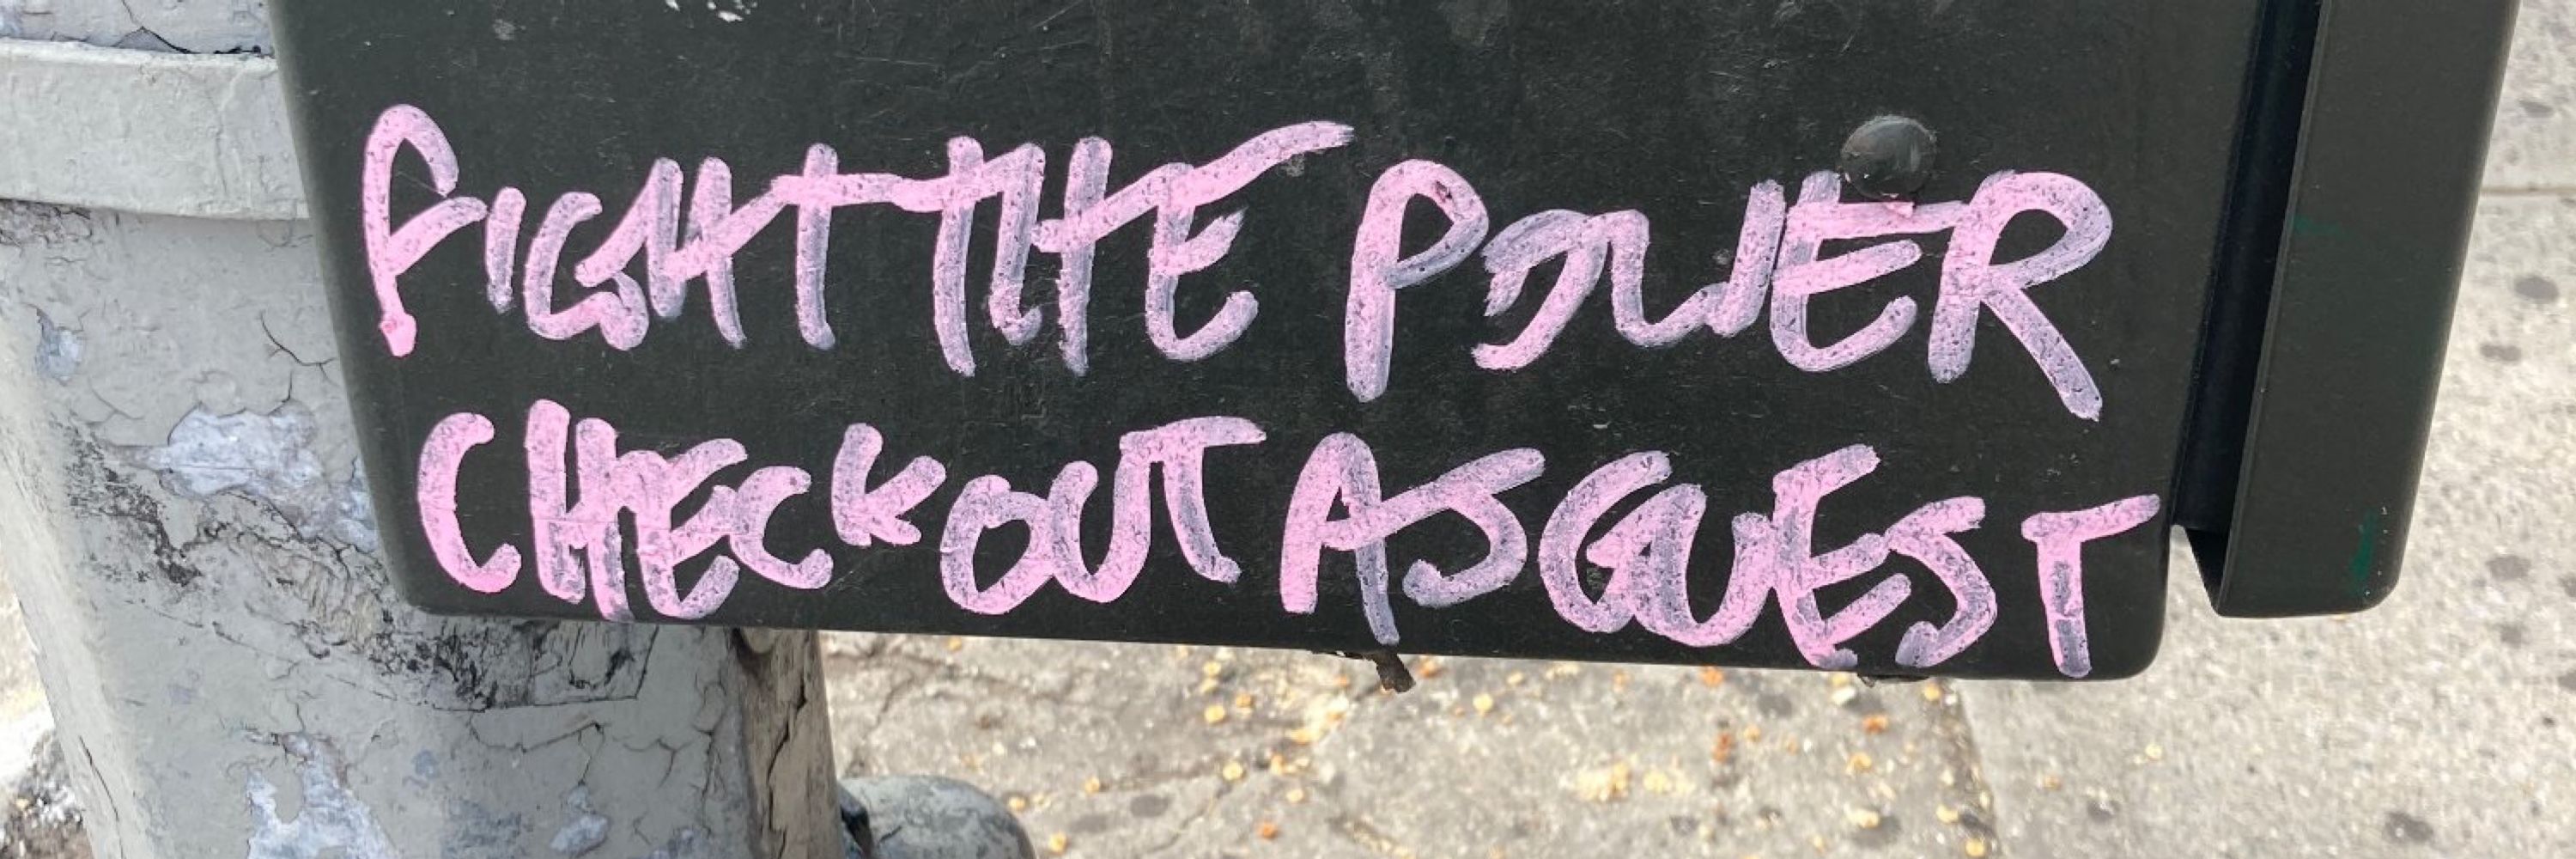 FIGHT THE POWER
CHECKOUT AS GUEST